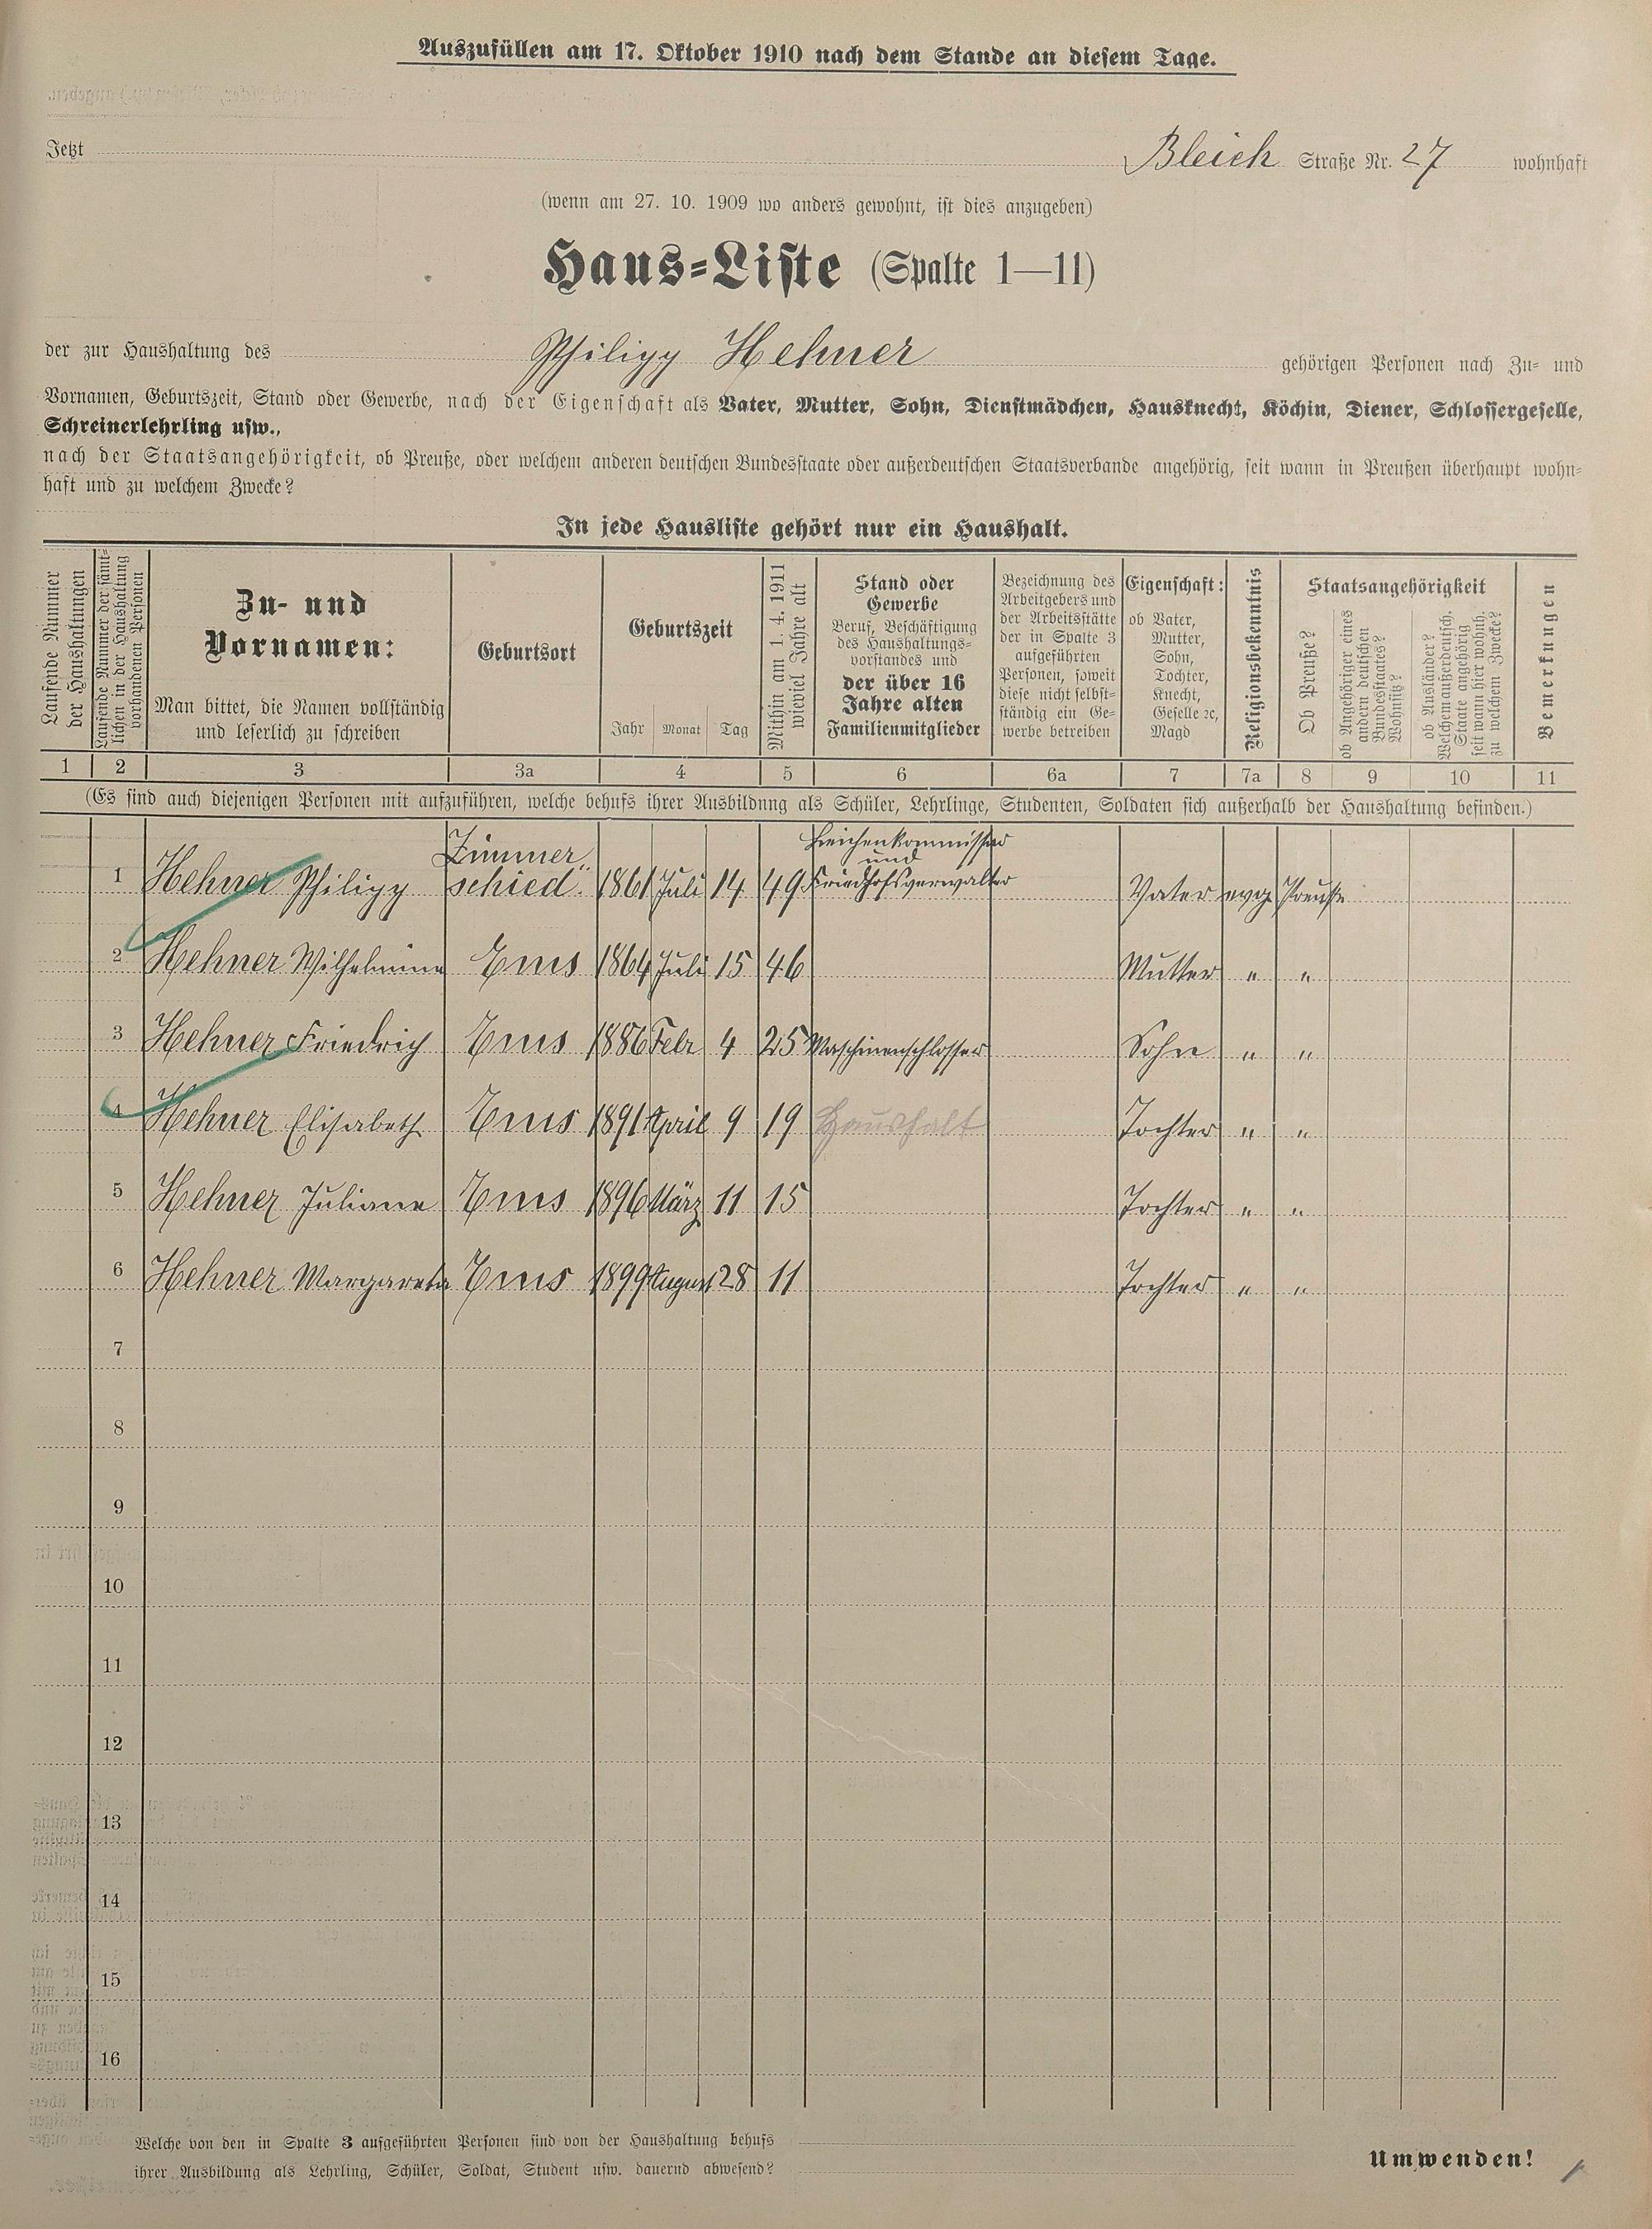 Auszufüllen am 17. Oktober 1910 nach dem Stande an diesem Tage.
Jetzt Bleich Straße Nr. 27 wohnhaft
(wenn am 27. 10. 1909 wo anders gewohnt, ist dies anzugeben)
Haus-Liste (Spalte 1—11)
der zur Haushaltung des Philipp Hehner gehörigen Personen nach Zu- und
Vornamen, Geburtszeit, Stand oder Gewerbe, nach der Eigenschaft als Vater, Mutter, Sohn, Dienstmädchen, Hausknecht, Köchin, Diener, Schlossergeselle,
Schreinerlehrling usw.,
nach der Staatsangehörigkeit, ob Preuße, oder welchem anderen deutschen Bundesstaate oder außerdeutschen Staatsverbande angehörig, seit wann in Preußen überhaupt wohn-
haft und zu welchem Zwecke?
In jede Hausliste gehört nur ein Haushalt.
Laufende Nummer
der Haushaltungen
Laufende Nummer der sämt-
lichen in der Haushaltung
vorhandenen Personen
Zu- und
Vornamen:
Man bittet, die Namen vollständig
und leserlich zu schreiben
Geburtsort
Geburtszeit
Jahr Monat Tag
Mithin am 1. 4. 1911
wieviel Jahre alt
Stand oder
Gewerbe
Beruf, Beschäftigung
des Haushaltungs-
vorstandes und
der über 16
Jahre alten
Familienmitglieder
Bezeichnung des
Arbeitgebers und
der Arbeitsstätte
der in Spalte 3
aufgeführten
Personen, soweit
diese nicht selbst-
ständig ein Ge-
werbe betreiben
Eigenschaft:
ob Vater,
Mutter,
Sohn,
Tochter,
Knecht,
Geselle ec,
Magd
Religionsbekenntnis
Staatsangehörigkeit
Ob Preuße?
ob Angehöriger eines
andern deutschen
Bundesstaates?
Wohnsitz?
ob Ausländer?
Welchem außerdeutsch.
Staate angehörig
seit wann hier wohnh.
zu welchem Zwecke?
Bemerkungen
1 2 3 3a 4 5 6 6a 7 7a 8 9 10 11
(Es sind auch diejenigen Personen mit aufzuführen, welche behufs ihrer Ausbildung als Schüler, Lehrlinge, Studenten, Soldaten sich außerhalb der Haushaltung befinden.)
Zimmer Leichenkommissar
und
1 Hehner Philipp schied 1861 Juli 14 49 Friedhofsverwalter Vater evg. Preuße
2 Hehner Wilhelmine Ems 1864 Juli 15 46 Mutter " "
3 Hehner Friedrich Ems 1886 Febr 4 25 Maschinenschlosser Sohn " "
4 Hehner Elisabeth Ems 1891 April 9 19 Haushalt Tochter " "
5 Hehner Juliane Ems 1896 März 11 15 Tochter " "
6 Hehner Margareta Ems 1899 August 28 11 Tochter " "
7
8
9
10
11
12
13
14
15
16
Welche von den in Spalte 3 aufgeführten Personen sind von der Haushaltung behufs
ihrer Ausbildung als Lehrling, Schüler, Soldat, Student usw. dauernd abwesend?
Umwenden!